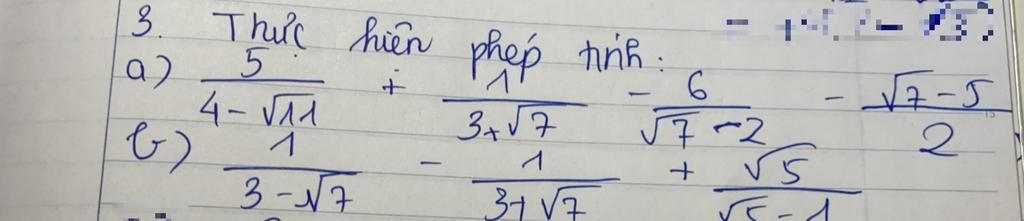 3. Thực hiện phép tính:
a) 5/(4-√11) + 1/(3+√7) - 6/(√7-2) - (√7-5)/2
b) 1/(3-√7) - 1/(3+√7) + √5/(√5-1)